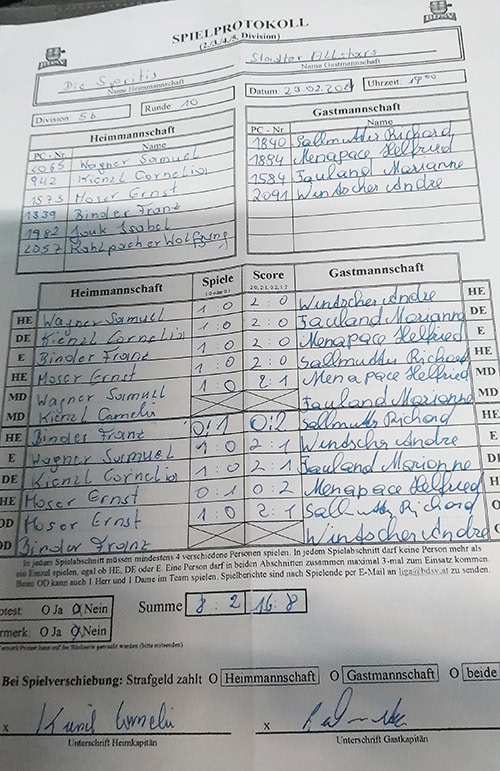 SPIELPROTOKOLL
(2./3./4./5. Division)
Die Spritis
Name Heimmannschaft
Stadtler Allstars
Name Gastmannschaft
Division: 5b
Runde: 10
Datum: 29.02.2024
Uhrzeit: 19:00
Heimmannschaft
PC - Nr. Name
2065 Wagner Samuel
942 Kienzl Cornelia
1573 Moser Ernst
1339 Binder Franz
1982 Jauk Isabel
2057 Kohlpacher Wolfgang
Gastmannschaft
PC - Nr. Name
1840 Sallmutter Richard
1884 Menapace Helfried
1584 Fauland Marianne
2091 Windscher Andre
Heimmannschaft Spiele Score Gastmannschaft
HE Wagner Samuel 1 : 0 2 : 0 Windscher Andre HE
DE Kienzl Cornelia 1 : 0 2 : 0 Fauland Marianne DE
E Binder Franz 1 : 0 2 : 0 Menapace Helfried E
HE Moser Ernst 1 : 0 2 : 0 Sallmutter Richard HE
MD Wagner Samuel 1 : 0 2 : 1 Menapace Helfried MD
MD Kienzl Cornelia Fauland Marianne MD
HE Binder Franz 0 : 1 0 : 2 Sallmutter Richard HE
E Wagner Samuel 1 : 0 2 : 1 Windscher Andre E
DE Kienzl Cornelia 1 : 0 2 : 1 Fauland Marianne DE
HE Moser Ernst 0 : 1 0 : 2 Menapace Helfried H
OD Moser Ernst 1 : 0 2 : 1 Sallmutter Richard O
OD Binder Franz Windscher Andre
In jedem Spielabschnitt müssen mindestens 4 verschiedene Personen spielen. In jedem Spielabschnitt darf keine Person mehr als
ein Einzel spielen, egal ob HE, DE oder E. Eine Person darf in beiden Abschnitten zusammen maximal 3-mal zum Einsatz kommen.
Beim OD kann auch 1 Herr und 1 Dame im Team spielen. Spielberichte sind nach Spielende per E-Mail an liga@bdsv.at zu senden.
otest: O Ja O Nein
Summe 8 : 2 16 : 8
rmerk: O Ja O Nein
Bei Spielverschiebung: Strafgeld zahlt O Heimmannschaft O Gastmannschaft O beide
x
Unterschrift Heimkapitän
x
Unterschrift Gastkapitän